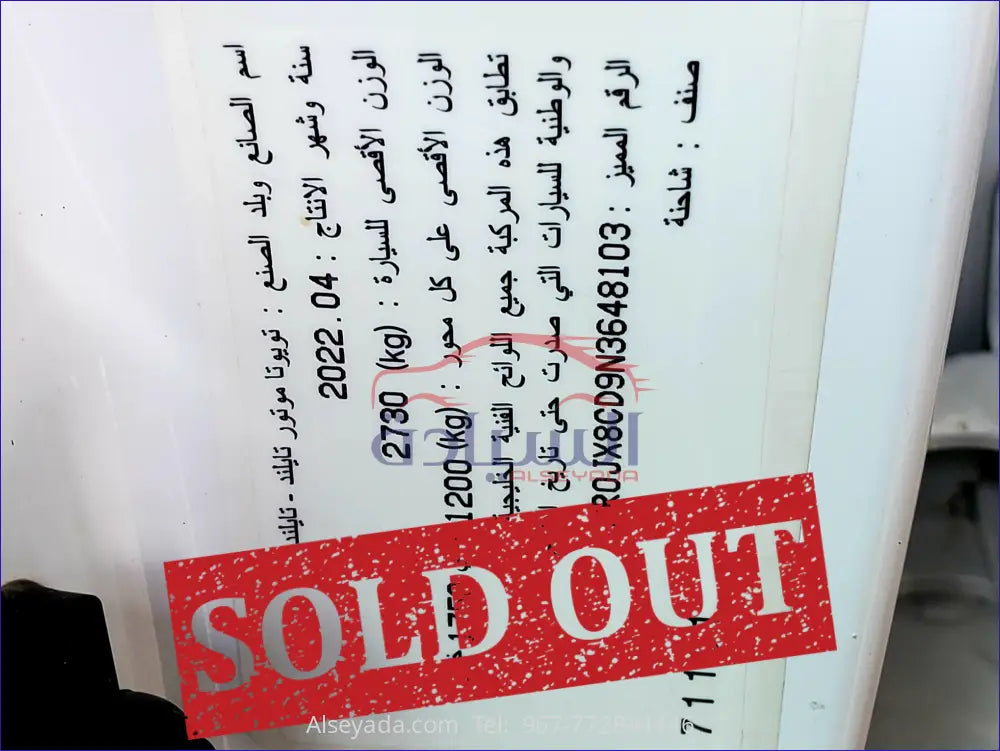 اسم الصانع وبلد الصنع : تويوتا موتور تايلند - تايلند
سنة وشهر الانتاج : 2022.04
الوزن الأقصى للسيارة : 2730 (kg)
الوزن الأقصى على كل محور : 1200(kg)
تطابق هذه المركبة جميع اللوائح الفنية الخليجية
والوطنية للسيارات التي صدرت حتى تاريخ
الرقم المميز : R0JX8CD9N3648103
صنف : شاحنة
السيادة
ALSEYADA
SOLD OUT
Alseyada.com Tel: